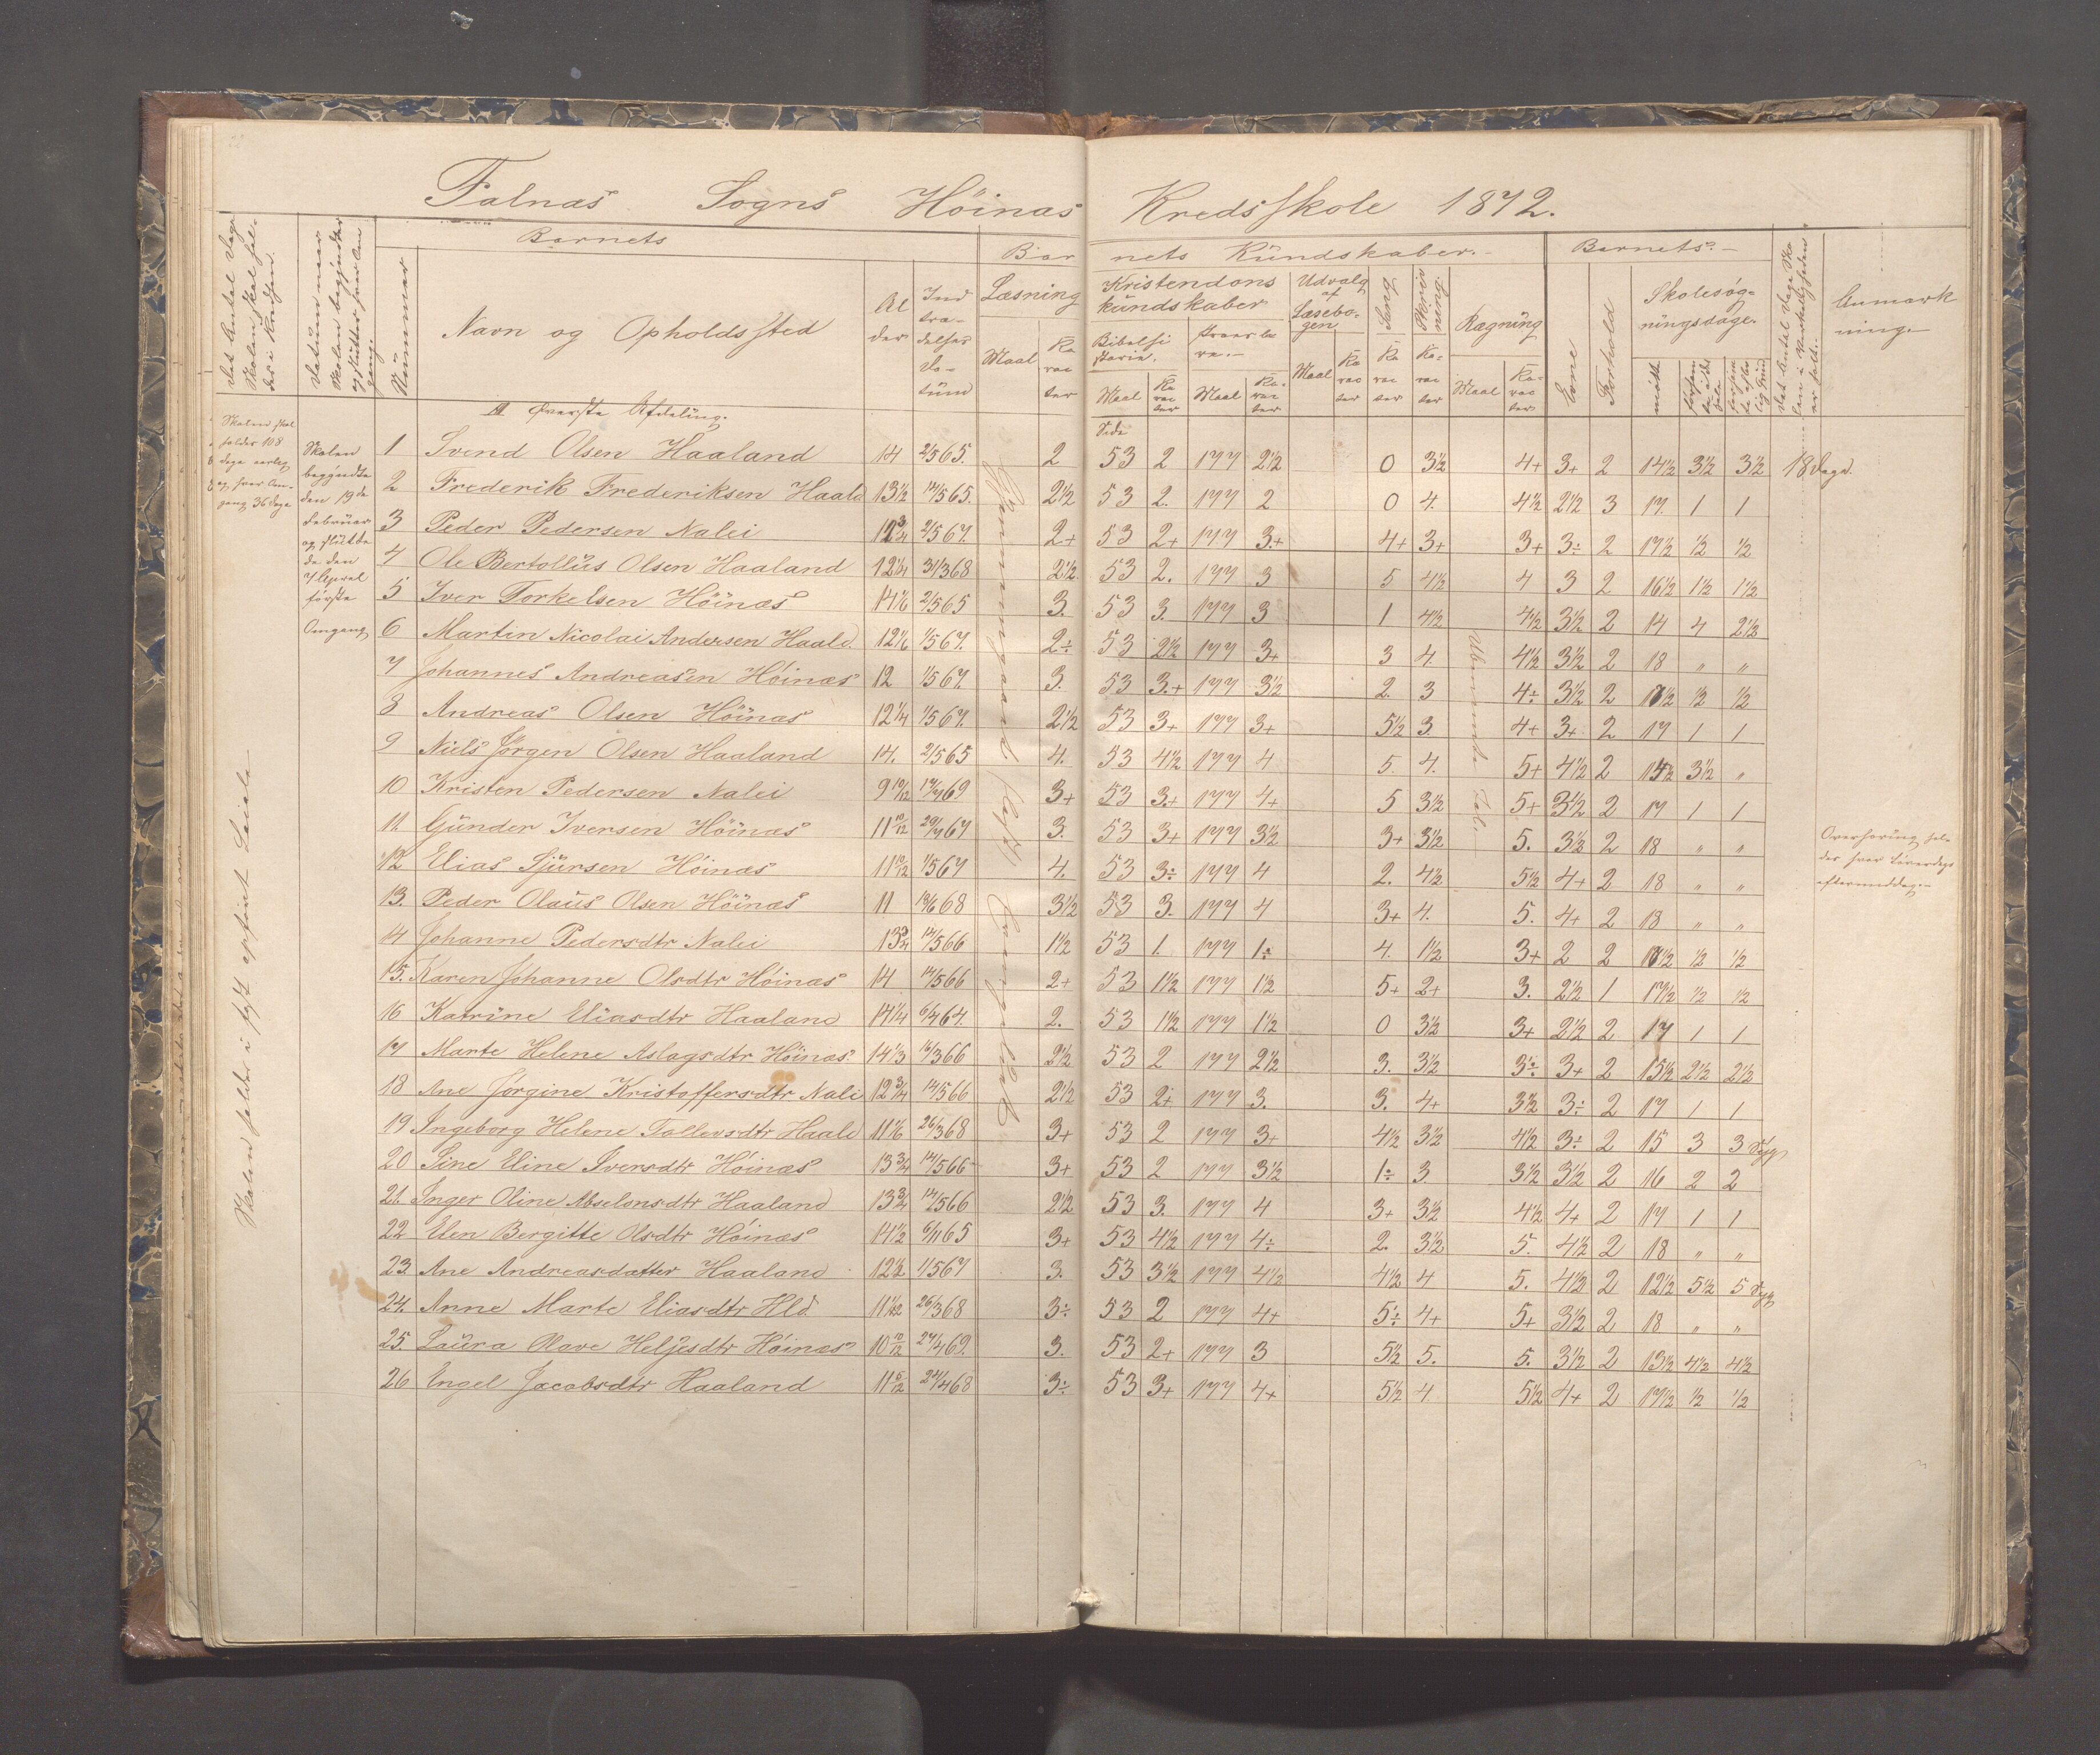 Falnæs Sogns Höinæs Kredsskole 1872.
Barnets
Barnets Kündskaber.
Barnets
Det Antal Dage Skolen skal holdes i Kredsen.
Datum naar Skolen begynder og slutter hver Omgang.
Nümmer
Navn og Opholdssted
Alder
Indtrædelses Datüm
Læsning
Kristendomskündskaber
Udvalg af Læsebogen
Sang
Skrivning.
Regning
Evne
Forhold
Skolesøgningsdage.
Anmærkning.
Bibelhistorie.
Troeslære.
Maal
Karacter
mødt
A Øverste Afdeling.
Side
Skolen skal holdes 108 dage aarlig og hver Omgang 36 dage
Skolen begyndte den 19de Februar og slüttede den 7 April første Omgang
1 Svend Olsen Haaland 14 2/5 65. 2 53 2 177 2½ 0 3½ 4+ 3+ 2 14½ 3½ 3½ 18 Dage.
2 Frederik Frederiksen Haald 13½ 14/5 65. 2½ 53 2. 177 2 0 4. 4½ 2½ 3 17. 1 1
3 Peder Pedersen Nalei 2/5 67. 2+ 53 2+ 177 3+ 4+ 3+ 3+ 3÷ 2 17½ ½ ½
4 Ole Bertollüs Olsen Haaland 12¼ 31/3 68 2½ 53 2. 177 3 5 4½ 4 3 2 16½ 1½ 1½
5 Iver Torkelsen Höinæs 14 1/6 2/5 65 3. 53 3. 177 3 1 4½ 4½ 3½ 2 14 4 2½
6 Martin Nicolai Andersen Haald. 12 1/6 1/5 67. 2÷ 53 2½ 177 3+ 3 4. 4½ 3½ 2 18 " "
7 Johannes Andreasen Höinæs 12 1/5 67. 3. 53 3.+ 177 3½ 2. 3 4÷ 3½ 2 17½ ½ ½
8 Andreas Olsen Höinæs 12¼ 1/5 67. 2½ 53 3+ 177 3+ 5½ 3. 4+ 3+ 2 17 1 1
9 Niels Jörgen Olsen Haaland 14. 2/5 65 4. 53 4½ 177 4 5 4. 5+ 4½ 2 14½ 3½ "
10 Kristen Pedersen Nalei 9 10/12 17/4 69 3+ 53 3+ 177 4+ 5 3½ 5+ 3½ 2 17 1 1
11. Günder Iversen Höinæs 11 10/12 29/4 67 3. 53 3+ 177 3½ 3+ 3½ 5. 3½ 2 18 " "
12 Elias Sjürsen Höinæs 11 10/12 1/5 67 4. 53 3÷ 177 4 2. 4½ 5½ 4+ 2 18 " "
13. Peder Olaüs Olsen Höinæs 11 18/6 68 3½ 53 3. 177 4 3+ 4. 5. 4+ 2 18 " "
14 Johanne Pedersdtr Nalei 13¾ 14/5 66 1½ 53 1. 177 1÷ 4. 1½ 3+ 2 2 17½ ½ ½
15. Karen Johanne Olsdtr Höinæs 14 14/5 66 2+ 53 1½ 177 1½ 5+ 2+ 3. 2½ 1 17½ ½ ½
16 Katrine Eliasdtr Haaland 14¼ 6/4 64. 2. 53 1½ 177 1½ 0 3½ 3+ 2½ 2 17 1 1
17 Marte Helene Aslagsdtr Höinæs 14⅓ 16/3 66 2½ 53 2 177 2½ 3. 3½ 3÷ 3+ 2 15½ 2½ 2½
18 Ane Jørgine Kristoffersdtr Nalei 12¾ 14/5 66 2½ 53 2+ 177 3. 3. 4+ 3½ 3÷ 2 17 1 1
19 Ingeborg Helene Tollevsdtr Haald 11 1/6 26/3 68 3+ 53 2 177 3+ 4½ 3½ 4½ 3÷ 2 15 3 3 Syg
20 Sine Eline Iversdtr Höinæs 13¾ 14/5 66 3+ 53 2 177 3½ 1÷ 3 3½ 3½ 2 16 2 2
21. Inger Oline Abselonsdtr Haaland 13¾ 14/5 66 2½ 53 3. 177 4 3+ 3½ 4½ 4+ 2 17 1 1
22 Elen Bergitte Olsdtr Höinæs 14½ 6/11 65 3+ 53 4½ 177 4÷ 2. 3½ 5. 4½ 2 18 " "
23 Ane Andreasdatter Haaland 12½ 1/5 67 3. 53 3½ 177 4½ 4½ 4 5. 4½ 2 12½ 5½ 5 Syg
24. Anne Marte Eliasdtr Hld 26/3 68 3÷ 53 2 177 4+ 5÷ 4+ 5+ 3½ 2 18 " "
25. Laüra Olave Heljesdtr Höinæs 10 10/12 27/4 69. 3. 53 2+ 177 3 5½ 5. 5. 3½ 2 13½ 4½ 4½
26 Engel Jacobsdtr Haaland 11 5/12 24/4 68 3÷ 53 3+ 177 4+ 5½ 4. 5½ 4+ 2 17½ ½ ½
Overhøring holdes hver Løverdags eftermiddag.